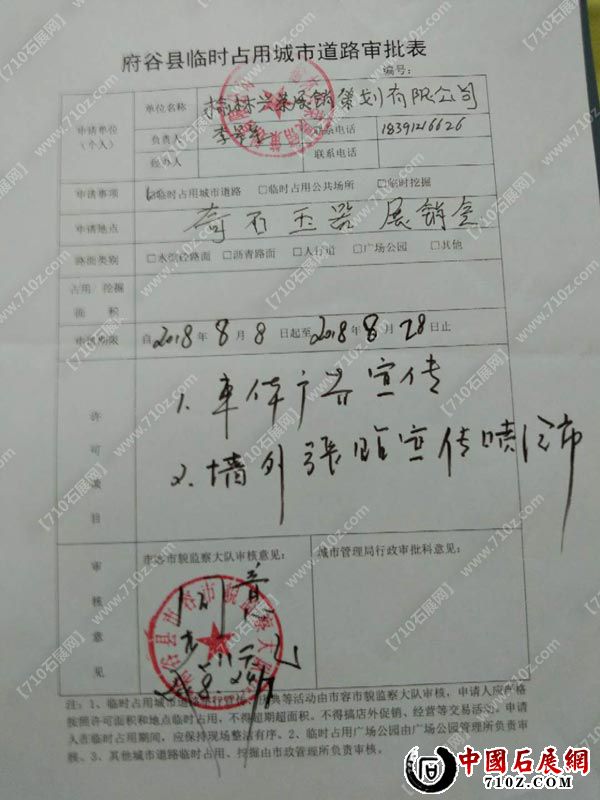 府谷县临时占用城市道路审批表
编号：
申请单位（个人）
单位名称 榆林兴荣展销策划有限公司
负责人 联系电话 18391216626
经办人 联系电话
申请事项 临时占用城市道路 □临时占用公共场所 □临时挖掘
申请地点 奇石玉器展销会
路面类别 □水泥砼路面 □沥青路面 □人行道 □广场公园 □其他
占用 挖掘
面 积
申请期限 自2018年8月8日起至2018年8月28日止
许可项目
1、车体广告宣传
2、墙外張貼宣传喷绘布
审核意见
市容市貌监察大队审核意见：
城市管理局行政审批科意见：
同意
府谷县市容市貌监察大队
注：1、临时占用城市道路举行宣传、庆典等活动由市容市貌监察大队审核，申请人应严格
按照许可面积和地点临时占用，不得超期超面积。不得搞店外促销、经营等交易活动。申请
人在临时占用期间，应保持现场整洁有序。2、临时占用广场公园由广场公园管理所负责审
核。3、其他城市道路临时占用、挖掘由市政管理所负责审核。
【710石展网】
www.710z.com
中國石展網
710Z.COM